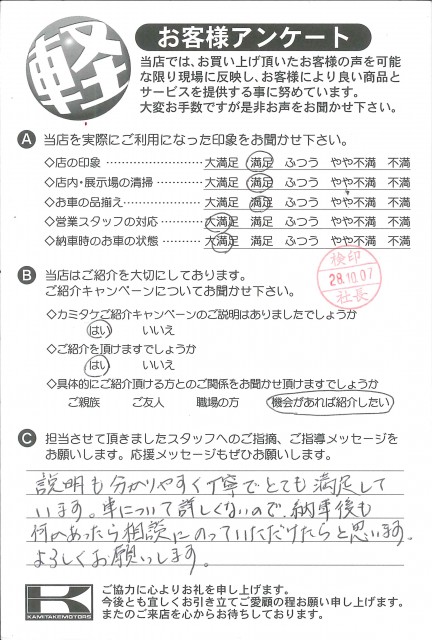 軽
お客様アンケート
当店では、お買い上げ頂いたお客様の声を可能
な限り現場に反映し、お客様により良い商品と
サービスを提供する事に努めています。
大変お手数ですが是非お声をお聞かせ下さい。
A 当店を実際にご利用になった印象をお聞かせ下さい。
◇店の印象 ……………………… 大満足 満足 ふつう やや不満 不満
◇店内・展示場の清掃 ………… 大満足 満足 ふつう やや不満 不満
◇お車の品揃え ………………… 大満足 満足 ふつう やや不満 不満
◇営業スタッフの対応 ………… 大満足 満足 ふつう やや不満 不満
◇納車時のお車の状態 ………… 大満足 満足 ふつう やや不満 不満
検印
28.10.07
社長
B 当店はご紹介を大切にしております。
ご紹介キャンペーンについてお聞かせ下さい。
◇カミタケご紹介キャンペーンのご説明はありましたでしょうか
はい いいえ
◇ご紹介を頂けますでしょうか
はい いいえ
◇具体的にご紹介頂ける方とのご関係をお聞かせ頂けますでしょうか
ご親族 ご友人 職場の方 機会があれば紹介したい
C 担当させて頂きましたスタッフへのご指摘、ご指導メッセージを
お願いします。応援メッセージもぜひお願いします。
説明も分かりやすく丁寧でとても満足して
います。車について詳しくないので、納車後も
何かあったら相談にのっていただけたらと思います。
よろしくお願いします。
K
KAMITAKEMOTORS
ご協力に心よりお礼を申し上げます。
今後とも宜しくお引き立てご愛顧の程お願い申し上げます。
またのご来店を心からお待ちしております。